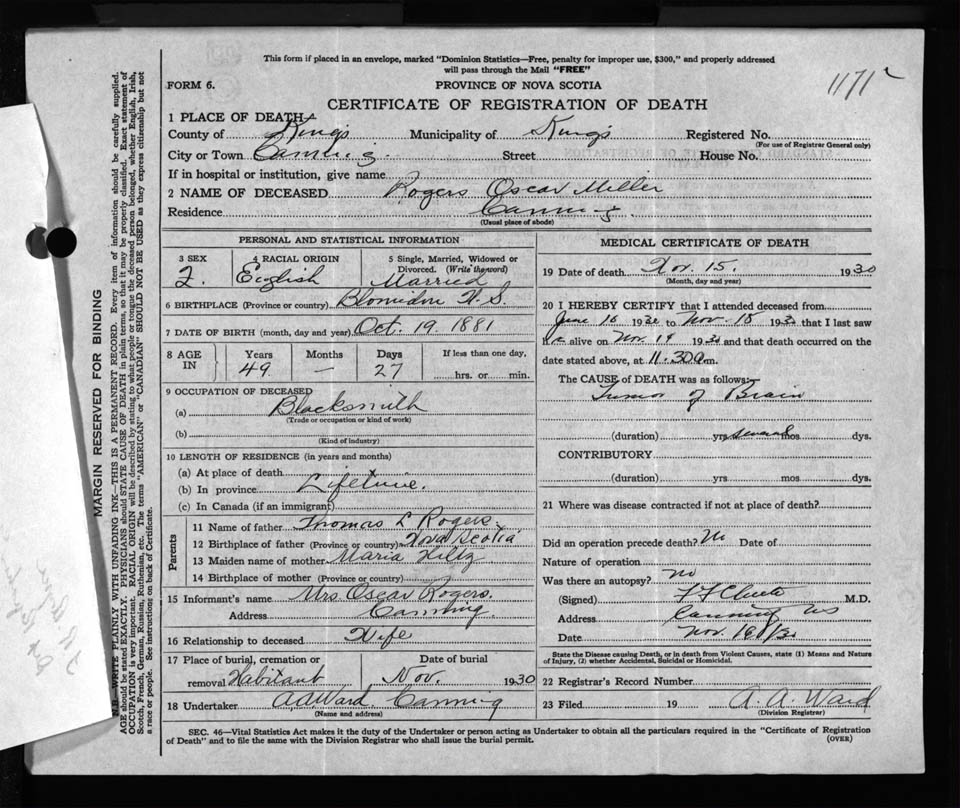 This form if placed in an envelope, marked "Dominion Statistics—Free, penalty for improper use, $300," and properly addressed
will pass through the Mail "FREE"
1171
FORM 6.
PROVINCE OF NOVA SCOTIA
CERTIFICATE OF REGISTRATION OF DEATH
1 PLACE OF DEATH
County of Kings Municipality of Kings Registered No.
(For use of Registrar General only)
City or Town Canning Street House No.
If in hospital or institution, give name
2 NAME OF DECEASED Rogers Oscar Miller
Residence Canning
(Usual place of abode)
PERSONAL AND STATISTICAL INFORMATION
3 SEX 4 RACIAL ORIGIN 5 Single, Married, Widowed or
Divorced. (Write the word)
English Married
6 BIRTHPLACE (Province or country) Blomidon N.S.
7 DATE OF BIRTH (month, day and year) Oct. 19. 1881
8 AGE IN Years Months Days If less than one day,
49 — 27 hrs. or min.
9 OCCUPATION OF DECEASED
(a) Blacksmith
(Trade or occupation or kind of work)
(b)
(Kind of industry)
10 LENGTH OF RESIDENCE (in years and months)
(a) At place of death
(b) In province Lifetime.
(c) In Canada (if an immigrant)
Parents
11 Name of father Thomas L Rogers.
12 Birthplace of father (Province or country) Nova Scotia
13 Maiden name of mother Maria
14 Birthplace of mother (Province or country)
15 Informant's name Mrs. Oscar Rogers.
Address Canning
16 Relationship to deceased Wife
17 Place of burial, cremation or Date of burial
removal Habitant Nov. 1930
18 Undertaker A.A. Ward. Canning
(Name and address)
MEDICAL CERTIFICATE OF DEATH
19 Date of death Nov. 15. 1930
(Month, day and year)
20 I HEREBY CERTIFY that I attended deceased from
June 16 1930 to Nov. 15 1930 that I last saw
alive on Nov. 1930 and that death occurred on the
date stated above, at 11.30 a.m.
The CAUSE of DEATH was as follows:
Tumor of Brain
(duration) yrs several mos dys.
CONTRIBUTORY
(duration) yrs mos dys.
21 Where was disease contracted if not at place of death?
Did an operation precede death? No Date of
Nature of operation
Was there an autopsy? no
(Signed) M.D.
Address Canning NS
Date Nov.
State the Disease causing Death, or in death from Violent Causes, state (1) Means and Nature
of Injury, (2) whether Accidental, Suicidal or Homicidal.
22 Registrar's Record Number
23 Filed 19 A. A. Ward
(Division Registrar)
SEC. 46—Vital Statistics Act makes it the duty of the Undertaker or person acting as Undertaker to obtain all the particulars required in the "Certificate of Registration
of Death" and to file the same with the Division Registrar who shall issue the burial permit.
(OVER)
MARGIN RESERVED FOR BINDING
N.B.—WRITE PLAINLY WITH UNFADING INK—THIS IS A PERMANENT RECORD. Every item of information should be carefully supplied.
AGE should be stated EXACTLY. PHYSICIANS should STATE CAUSE OF DEATH in plain terms, so that it may be properly classified. Exact statement of
OCCUPATION is very important. RACIAL ORIGIN will be described by stating to what people or tongue the deceased person belonged, whether English, Irish,
Scotch, French, German, Russian, Ruthenian, etc. The terms "AMERICAN" or "CANADIAN" SHOULD NOT BE USED as they express citizenship but not
a race or people. See instructions on back of Certificate.